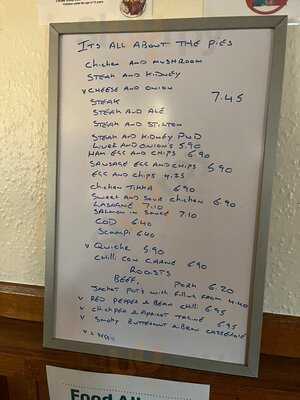 ITS ALL ABOUT THE PIES
CHICKEN AND MUSHROOM
STEAK AND KIDNEY
V CHEESE AND ONION
7.45
STEAK
STEAK AND ALE
STEAK AND STILTON
STEAK AND KIDNEY PUD
LIVER AND ONIONS 5.90
HAM EGG AND CHIPS 6.90
SAUSAGE EGG AND CHIPS 5.90
EGG AND CHIPS 4.25
CHICKEN TIKKA 6.90
SWEET AND SOUR CHICKEN 6.90
LASAGNE 7.10
SALMON IN SAUCE 7.10
COD 6.40
SCAMPI 6.40
V QUICHE 5.90
CHILLI CON CARNE 6.90
ROASTS
BEEF, PORK 6.20
JACKET POT'S WITH FILLING FROM 4.40
V RED PEPPER & BEAN CHILLI 6.95
V CHICKPEA & APRICOT TAGINE 6.95
V SMOKY BUTTERNUT & BEAN CASSEROLE
Food